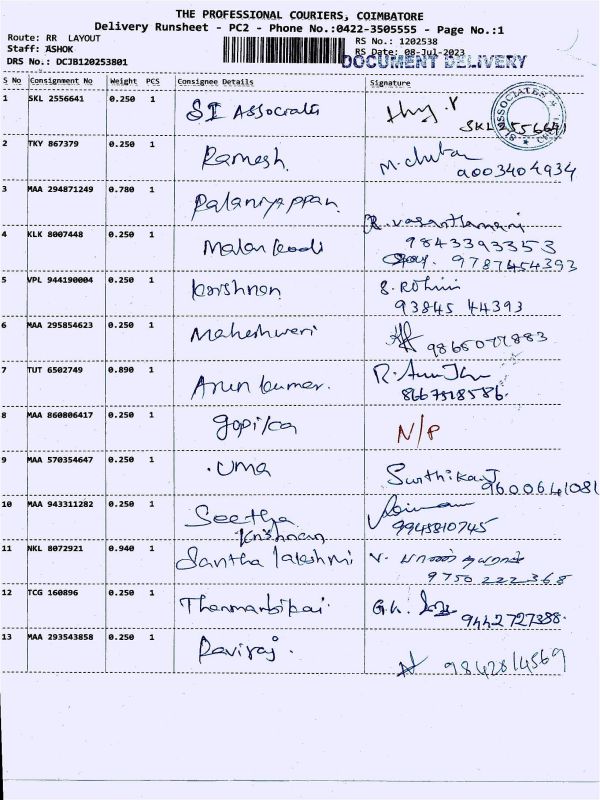 THE PROFESSIONAL COURIERS, COIMBATORE
Delivery Runsheet - PC2 - Phone No.:0422-3505555 - Page No.:1
Route: RR LAYOUT RS No.: 1202538
Staff: ASHOK RS Date: 08-Jul-2023
DRS No.: DCJB120253801 DOCUMENT DELIVERY
S No Consignment No Weight PCS Consignee Details Signature
1 SKL 2556641 0.250 1 SI Associates
SKL 2556641
2 TKY 867379 0.250 1 Ramesh
9003404934
3 MAA 294871249 0.780 1 Palaniyappan
R. vasanthamani
4 KLK 8007448 0.250 1 Malar kodi 9843393353
9787454393
5 VPL 944190004 0.250 1 Krishnan S. Rohini
93845 44393
6 MAA 295854623 0.250 1 Maheshweri
7 TUT 6502749 0.890 1 Arun kumar.
8 MAA 860806417 0.250 1 gopika N/P
9 MAA 570354647 0.250 1 Uma
9600641081
10 MAA 943311282 0.250 1 Seetha
Krishnan 9943810745
11 NKL 8072921 0.940 1 Santha lakshmi
9750 222 368
12 TCG 160896 0.250 1 G.K.
9442727388.
13 MAA 293543858 0.250 1 Raviraj.
9842814569